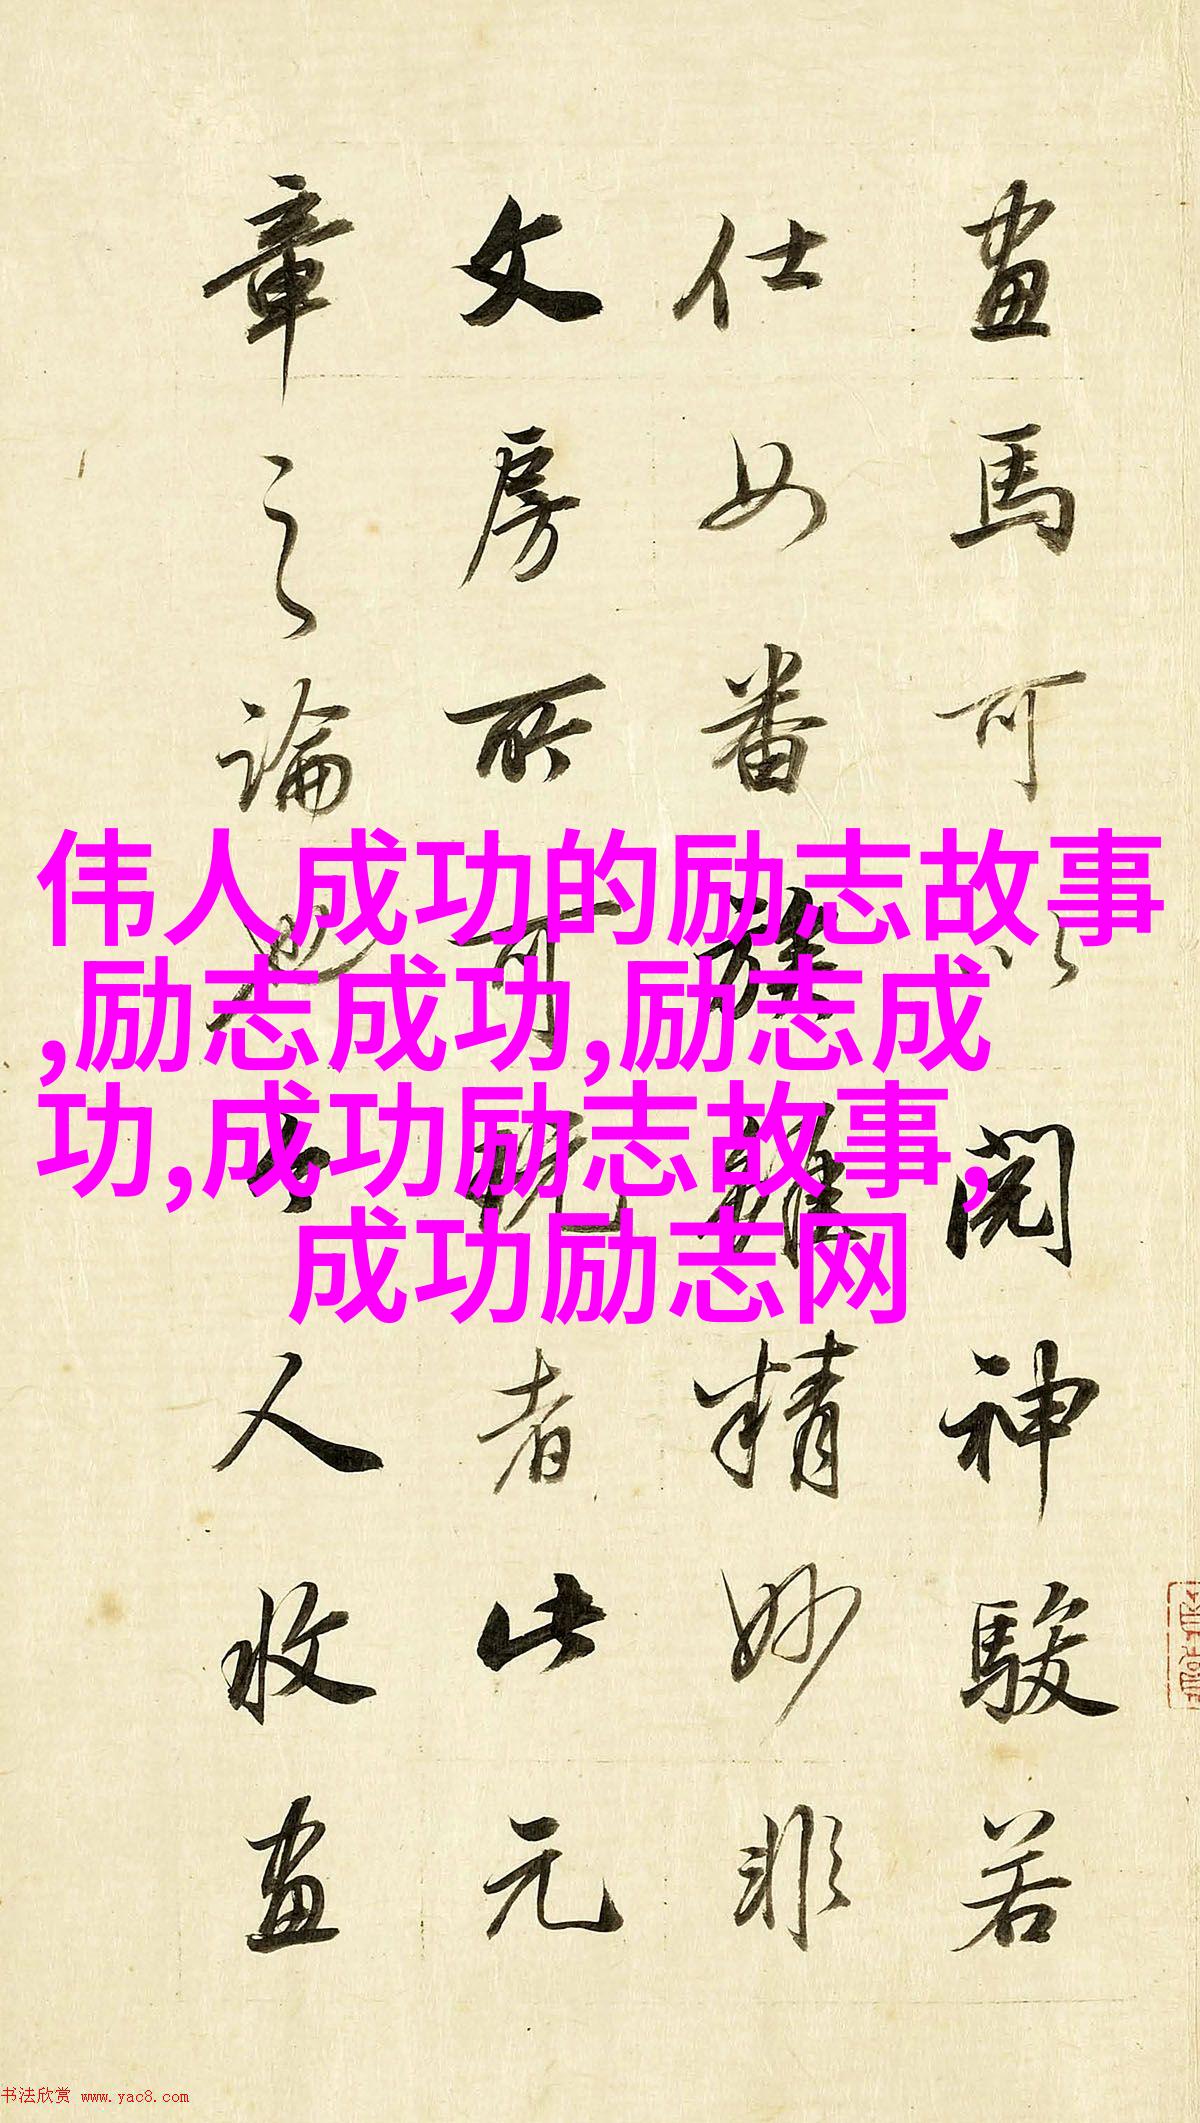 畫馬可以閱神駿若
仕女番族雖精妙非
文房所可玩者此元
章之論也今人收畫
伟人成功的励志故事
,励志成功,励志成
功,成功励志故事,
成功励志网
书法欣赏 www.yac8.com